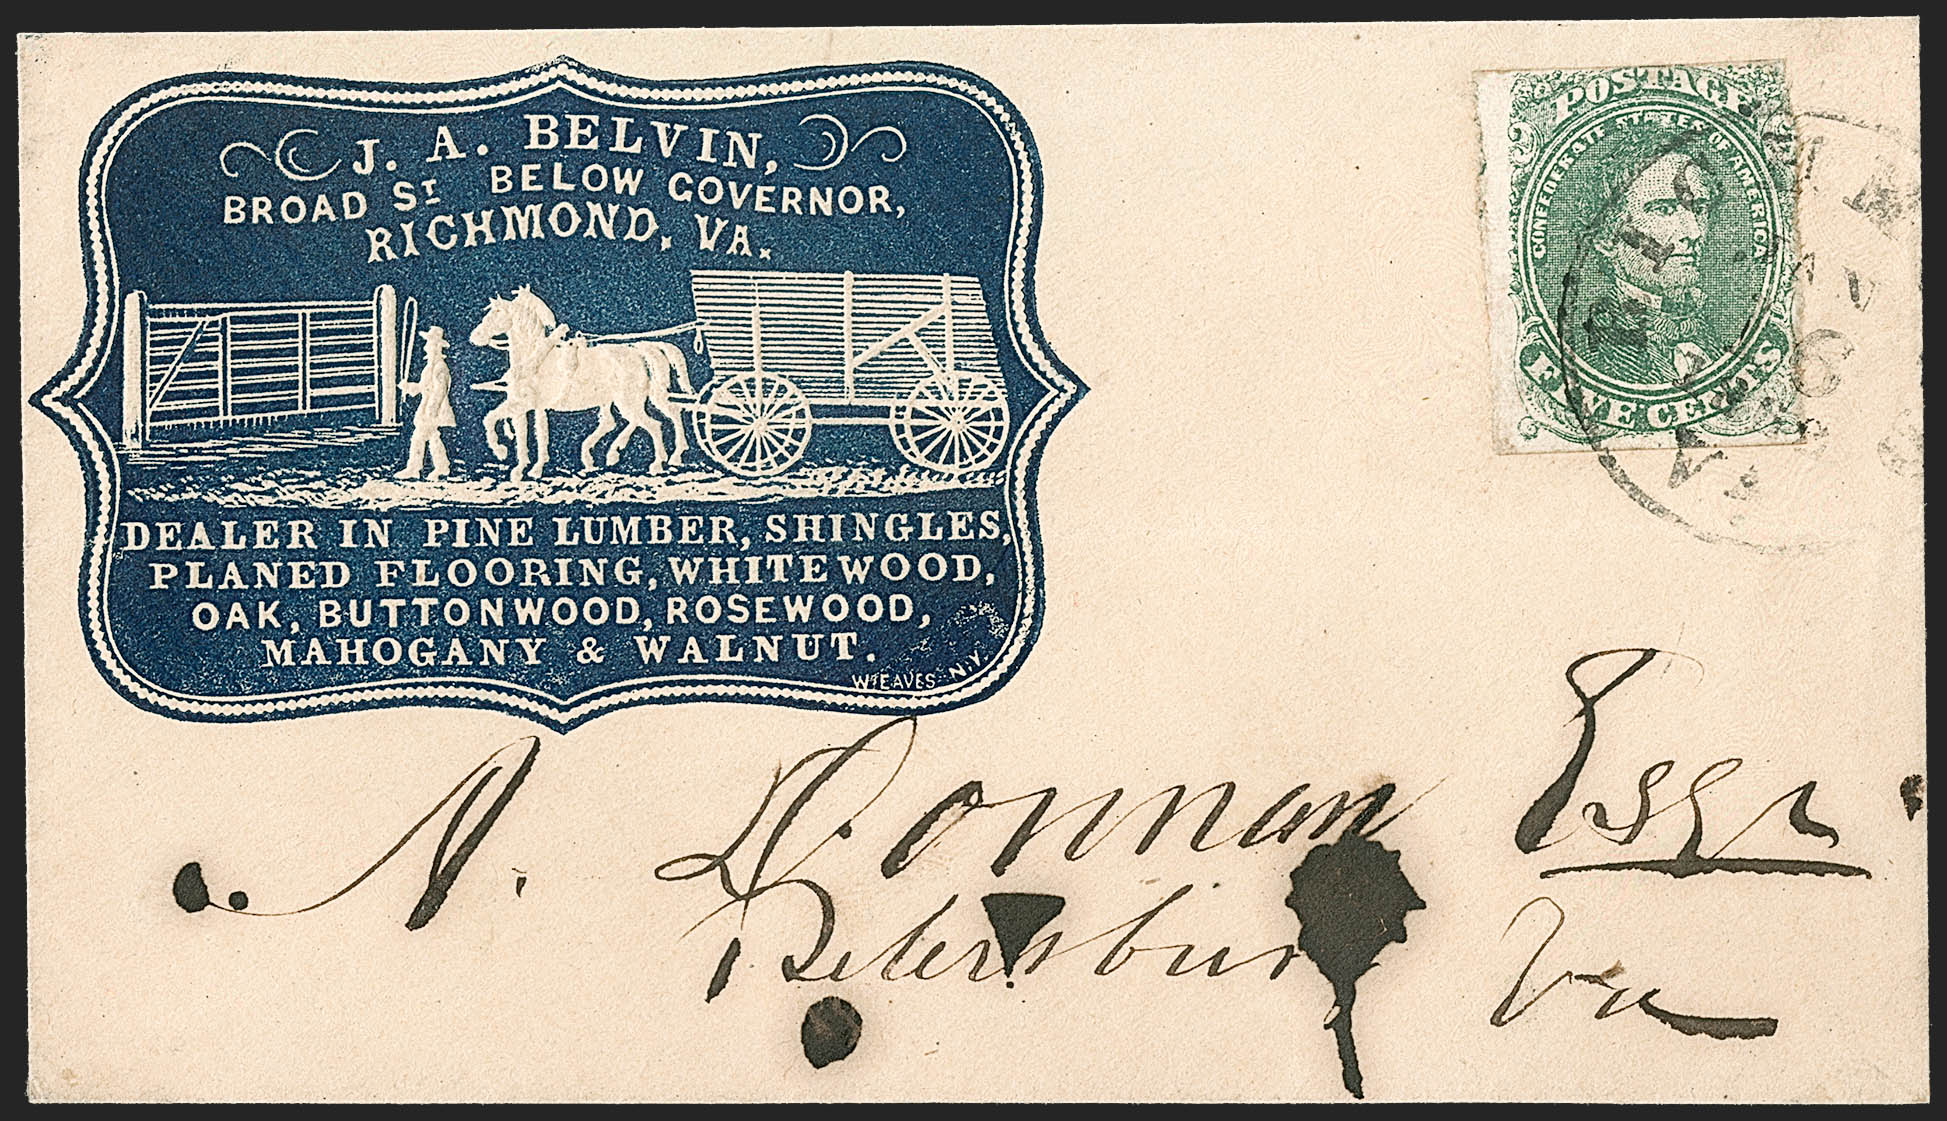 J. A. BELVIN,
BROAD ST BELOW GOVERNOR,
RICHMOND, VA.
DEALER IN PINE LUMBER, SHINGLES,
PLANED FLOORING, WHITEWOOD,
OAK, BUTTONWOOD, ROSEWOOD,
MAHOGANY & WALNUT.
WM EAVES N.Y.
POSTAGE
CONFEDERATE STATES OF AMERICA
FIVE CENTS
RICHM
VA
N. Donnan Esqr
Petersburg
Va